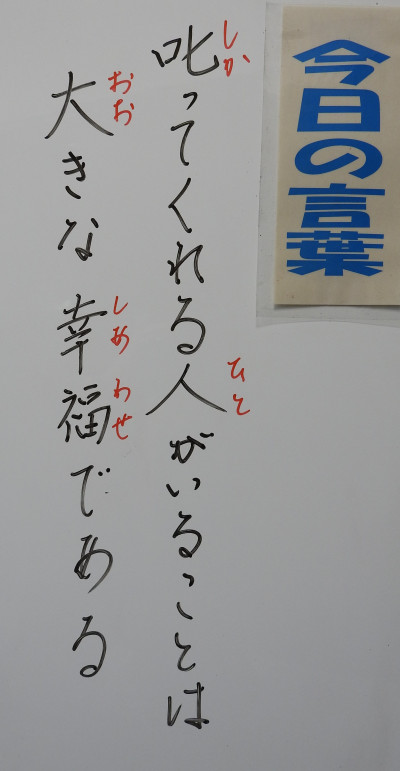 今日の言葉
叱ってくれる人がいることは
しか
ひと
大きな幸福である
おお
しあわせ